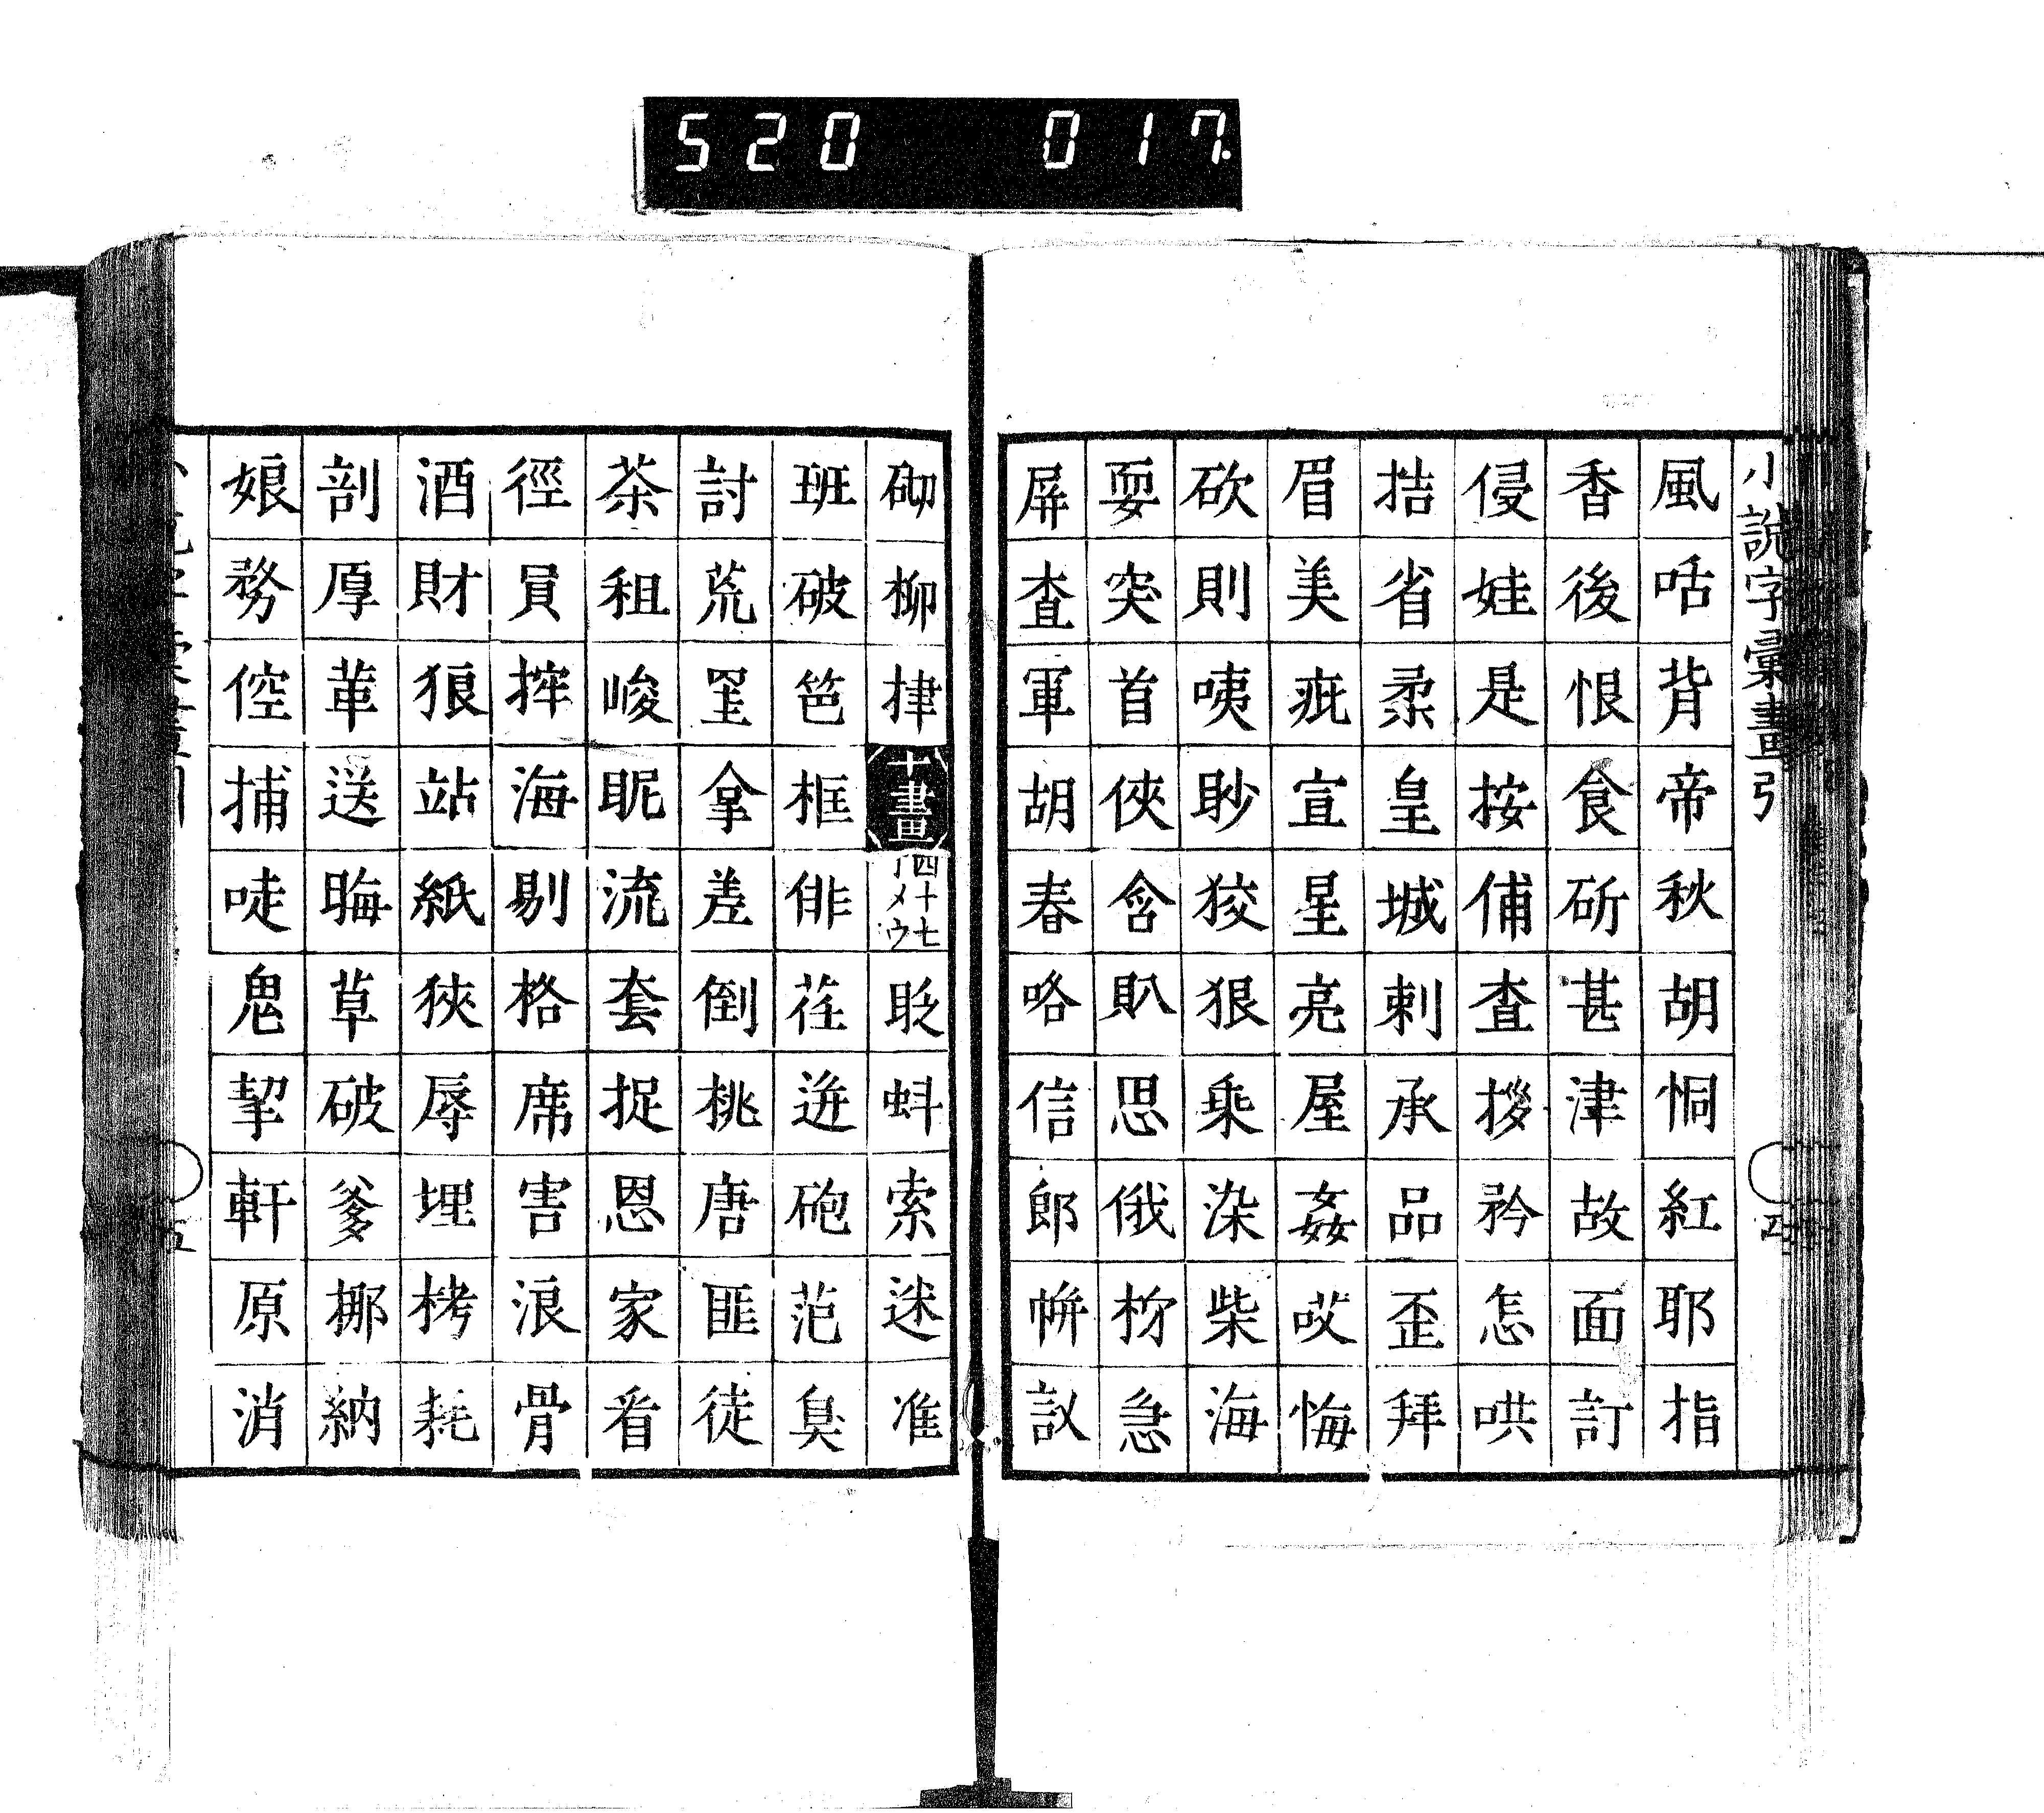 520 017.
小說字彙畫引
風咶背帝秋胡恫紅耶指
香後恨食斫甚津故面訂
侵娃是按俌查拶矜怎哄
拮省柔皇城剌承品歪拜
眉美疵宣星亮屋姦哎悔
砍則咦眇狡狠乘染柴海
耍突首俠含趴思俄枴急
屏查軍胡春咯信郎帡訍
砌柳律十畫四十七丁メウ眨蚪索迷准
班破笆框俳荏迸砲范臭
討荒罣拿差倒桃唐匪徒
茶租峻眤流套捉恩家看
徑員挥海剔格席害浪骨
酒財狼站紙狹辱埋栲耗
剖厚葷送晦草破爹挪納
娘務倥捕唗鬼挐軒原消